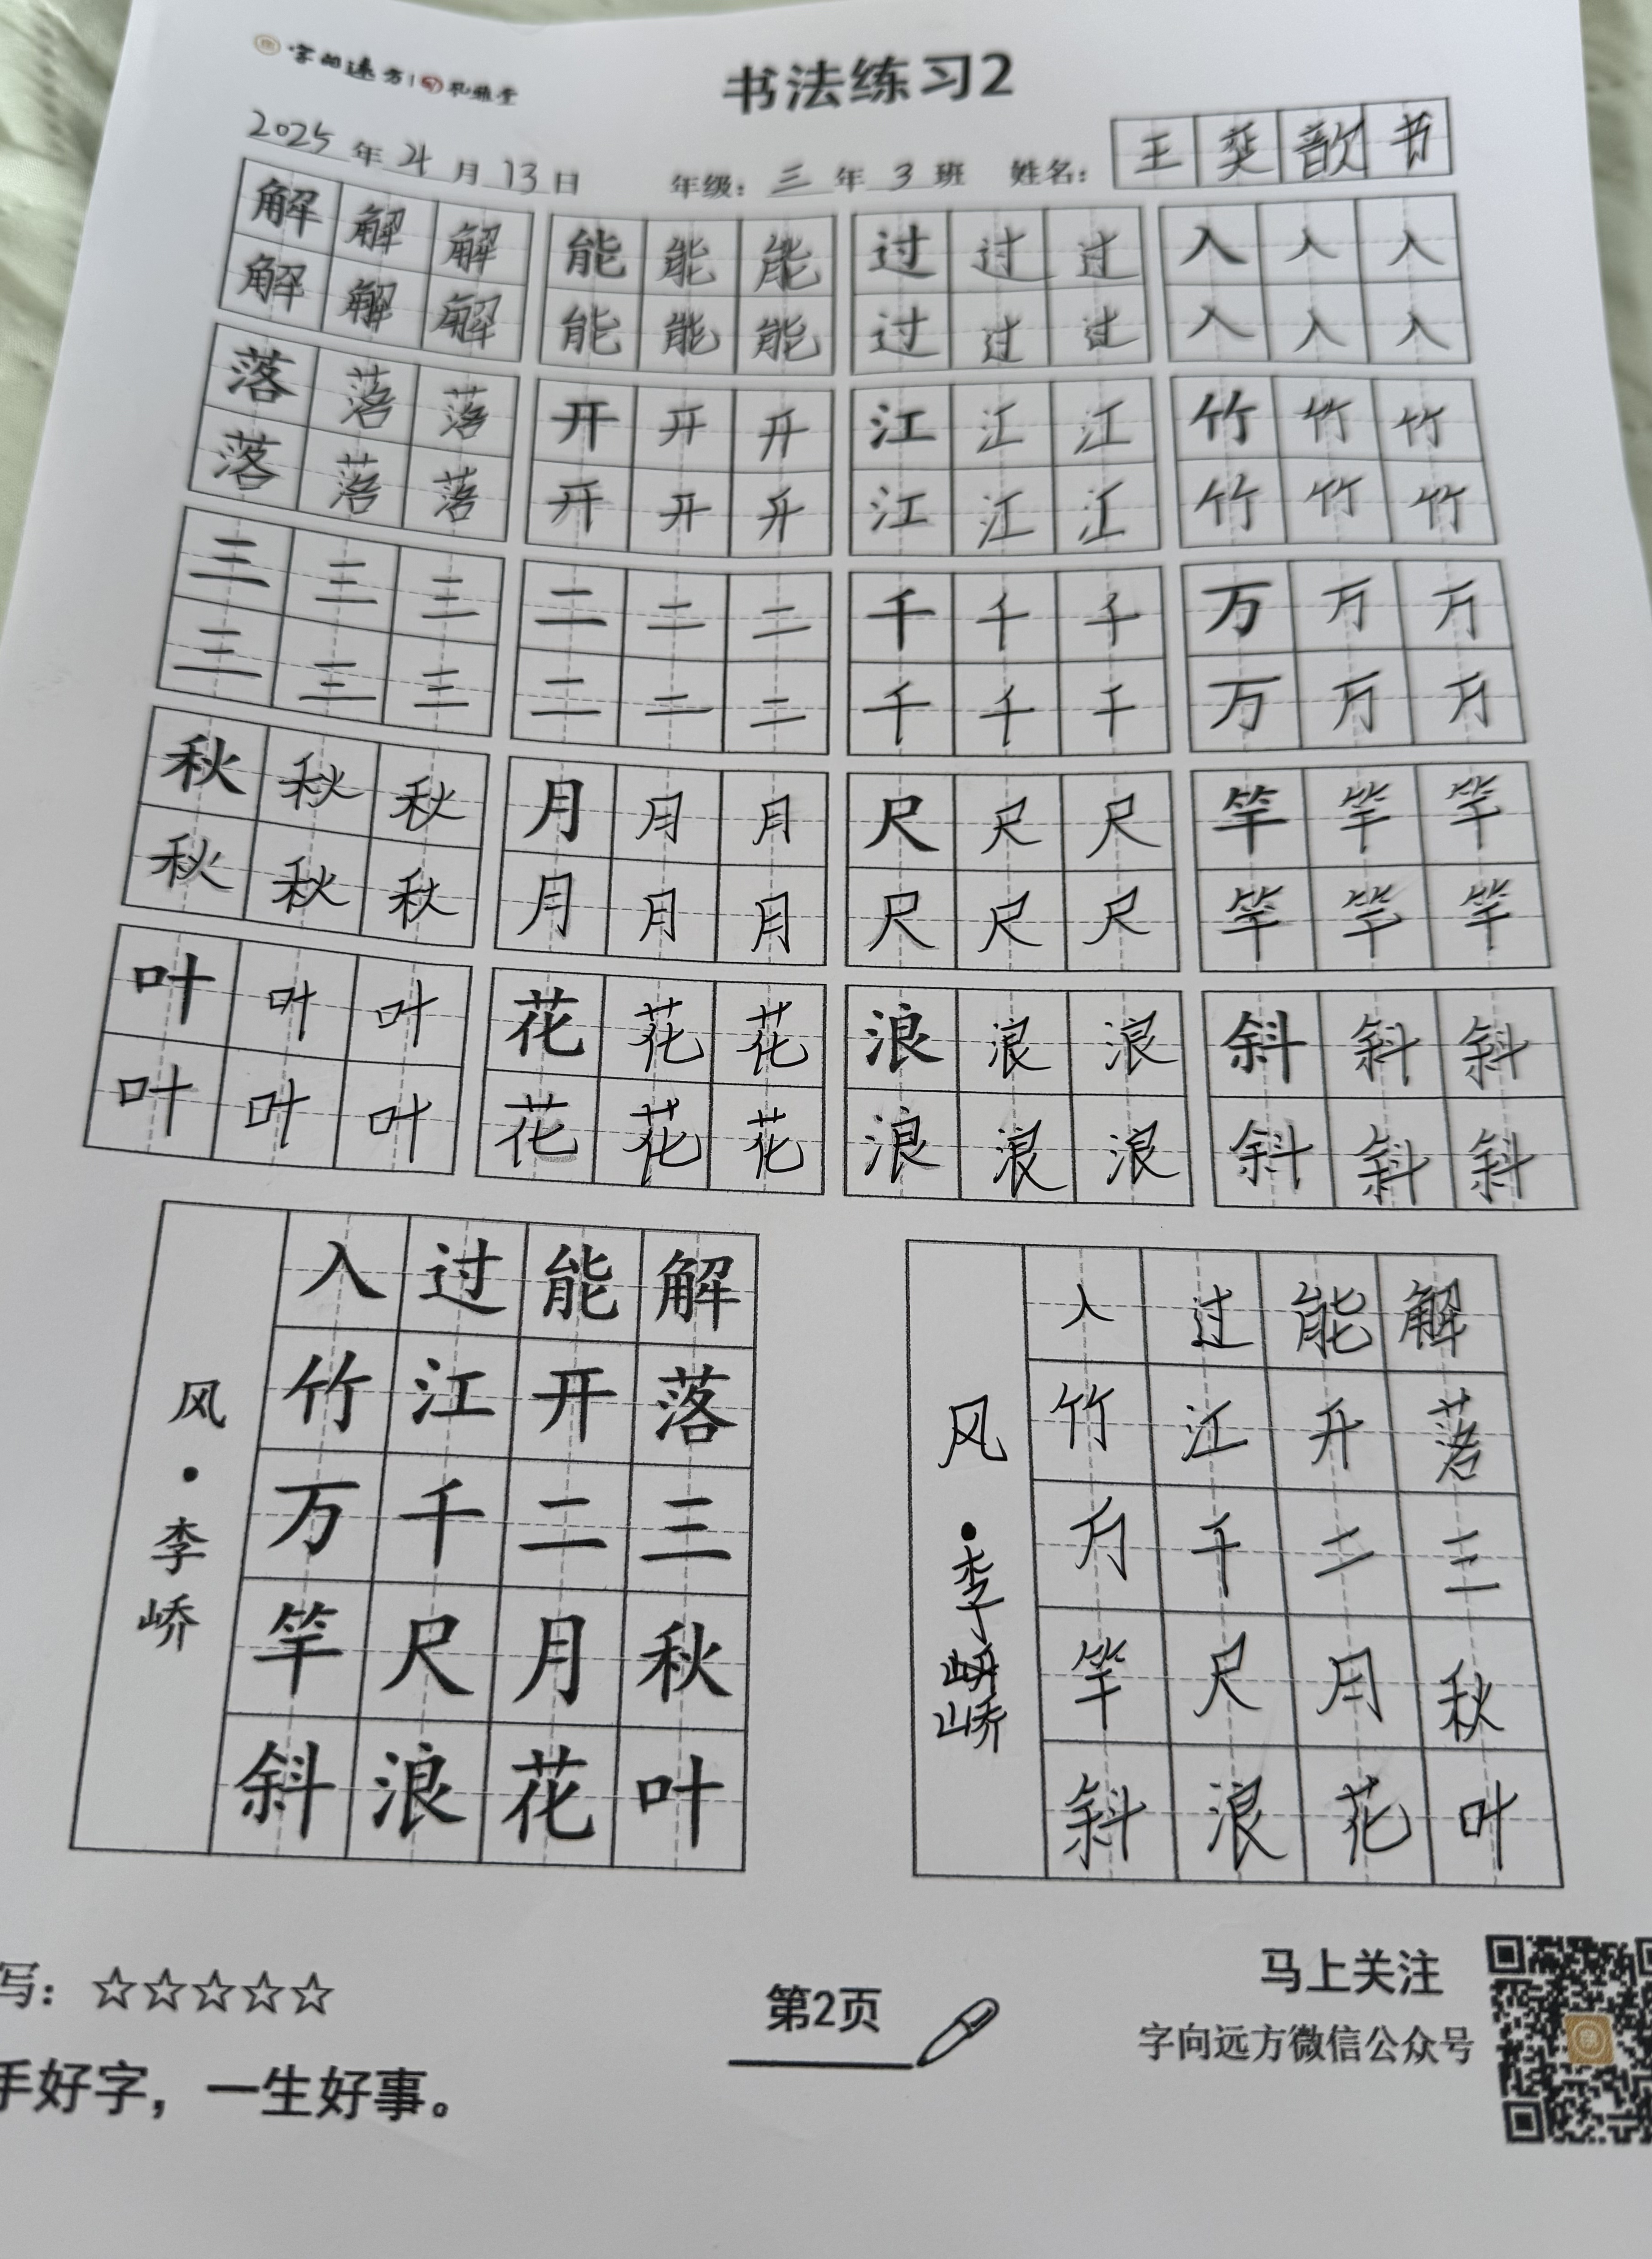 字向远方 | 孔雅堂
书法练习2
2025年4月13日 年级：三年3班 姓名：王奕歆书
解解解 能能能 过过过 入入入
解解解 能能能 过过过 入入入
落落落 开开开 江江江 竹竹竹
落落落 开开开 江江江 竹竹竹
三三三 二二二 千千千 万万万
三三三 二二二 千千千 万万万
秋秋秋 月月月 尺尺尺 竿竿竿
秋秋秋 月月月 尺尺尺 竿竿竿
叶叶叶 花花花 浪浪浪 斜斜斜
叶叶叶 花花花 浪浪浪 斜斜斜
解落三秋叶
能开二月花
过江千尺浪
入竹万竿斜
风·李峤
解落三秋叶
能开二月花
过江千尺浪
入竹万竿斜
风·李峤
写：☆☆☆☆☆
手好字，一生好事。
第2页
马上关注
字向远方微信公众号